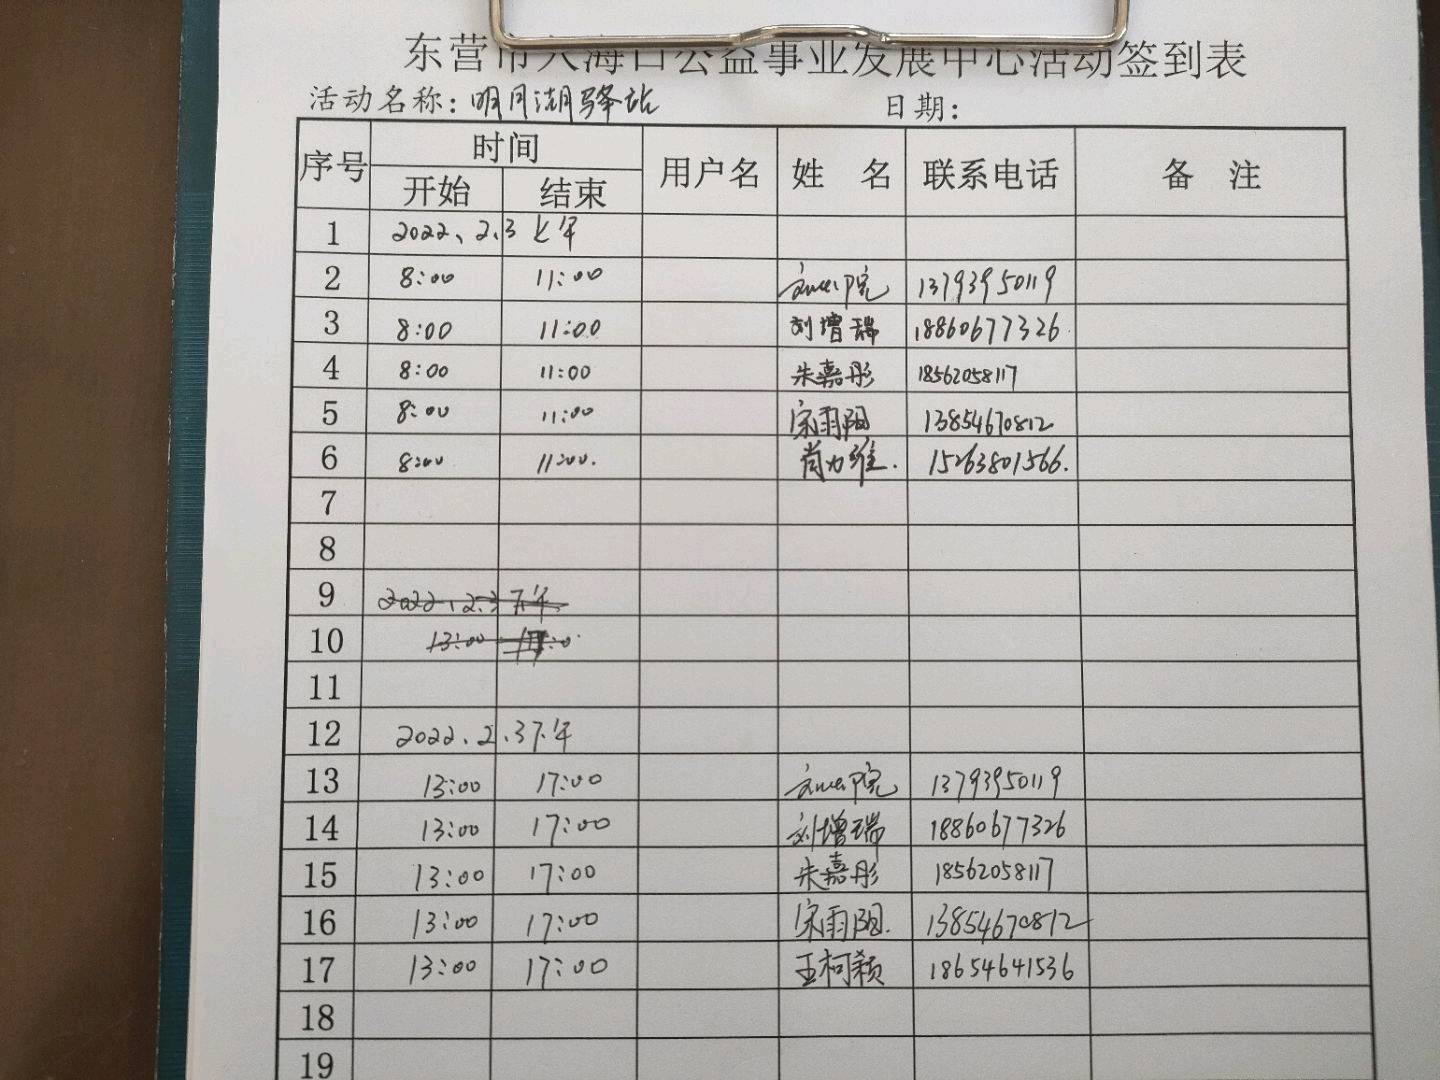 东营市入海口公益事业发展中心活动签到表
活动名称：明月湖驿站 日期：
序号 时间 用户名 姓 名 联系电话 备 注
开始 结束
1 2022、2.3 上午
2 8:00 11:00 13793950119
3 8:00 11:00 刘增瑞 18860677326
4 8:00 11:00 朱嘉彤 18562058117
5 8:00 11:00 宋雨阳 13854670812
6 8:00 11:00. 肖力维. 15263801566.
7
8
9 2022、2.3 下午
10 13:00
11
12 2022、2.3下午
13 13:00 17:00 13793950119
14 13:00 17:00 刘增瑞 18860677326
15 13:00 17:00 朱嘉彤 18562058117
16 13:00 17:00 宋雨阳. 13854670812
17 13:00 17:00 王柯颖 18654641536
18
19